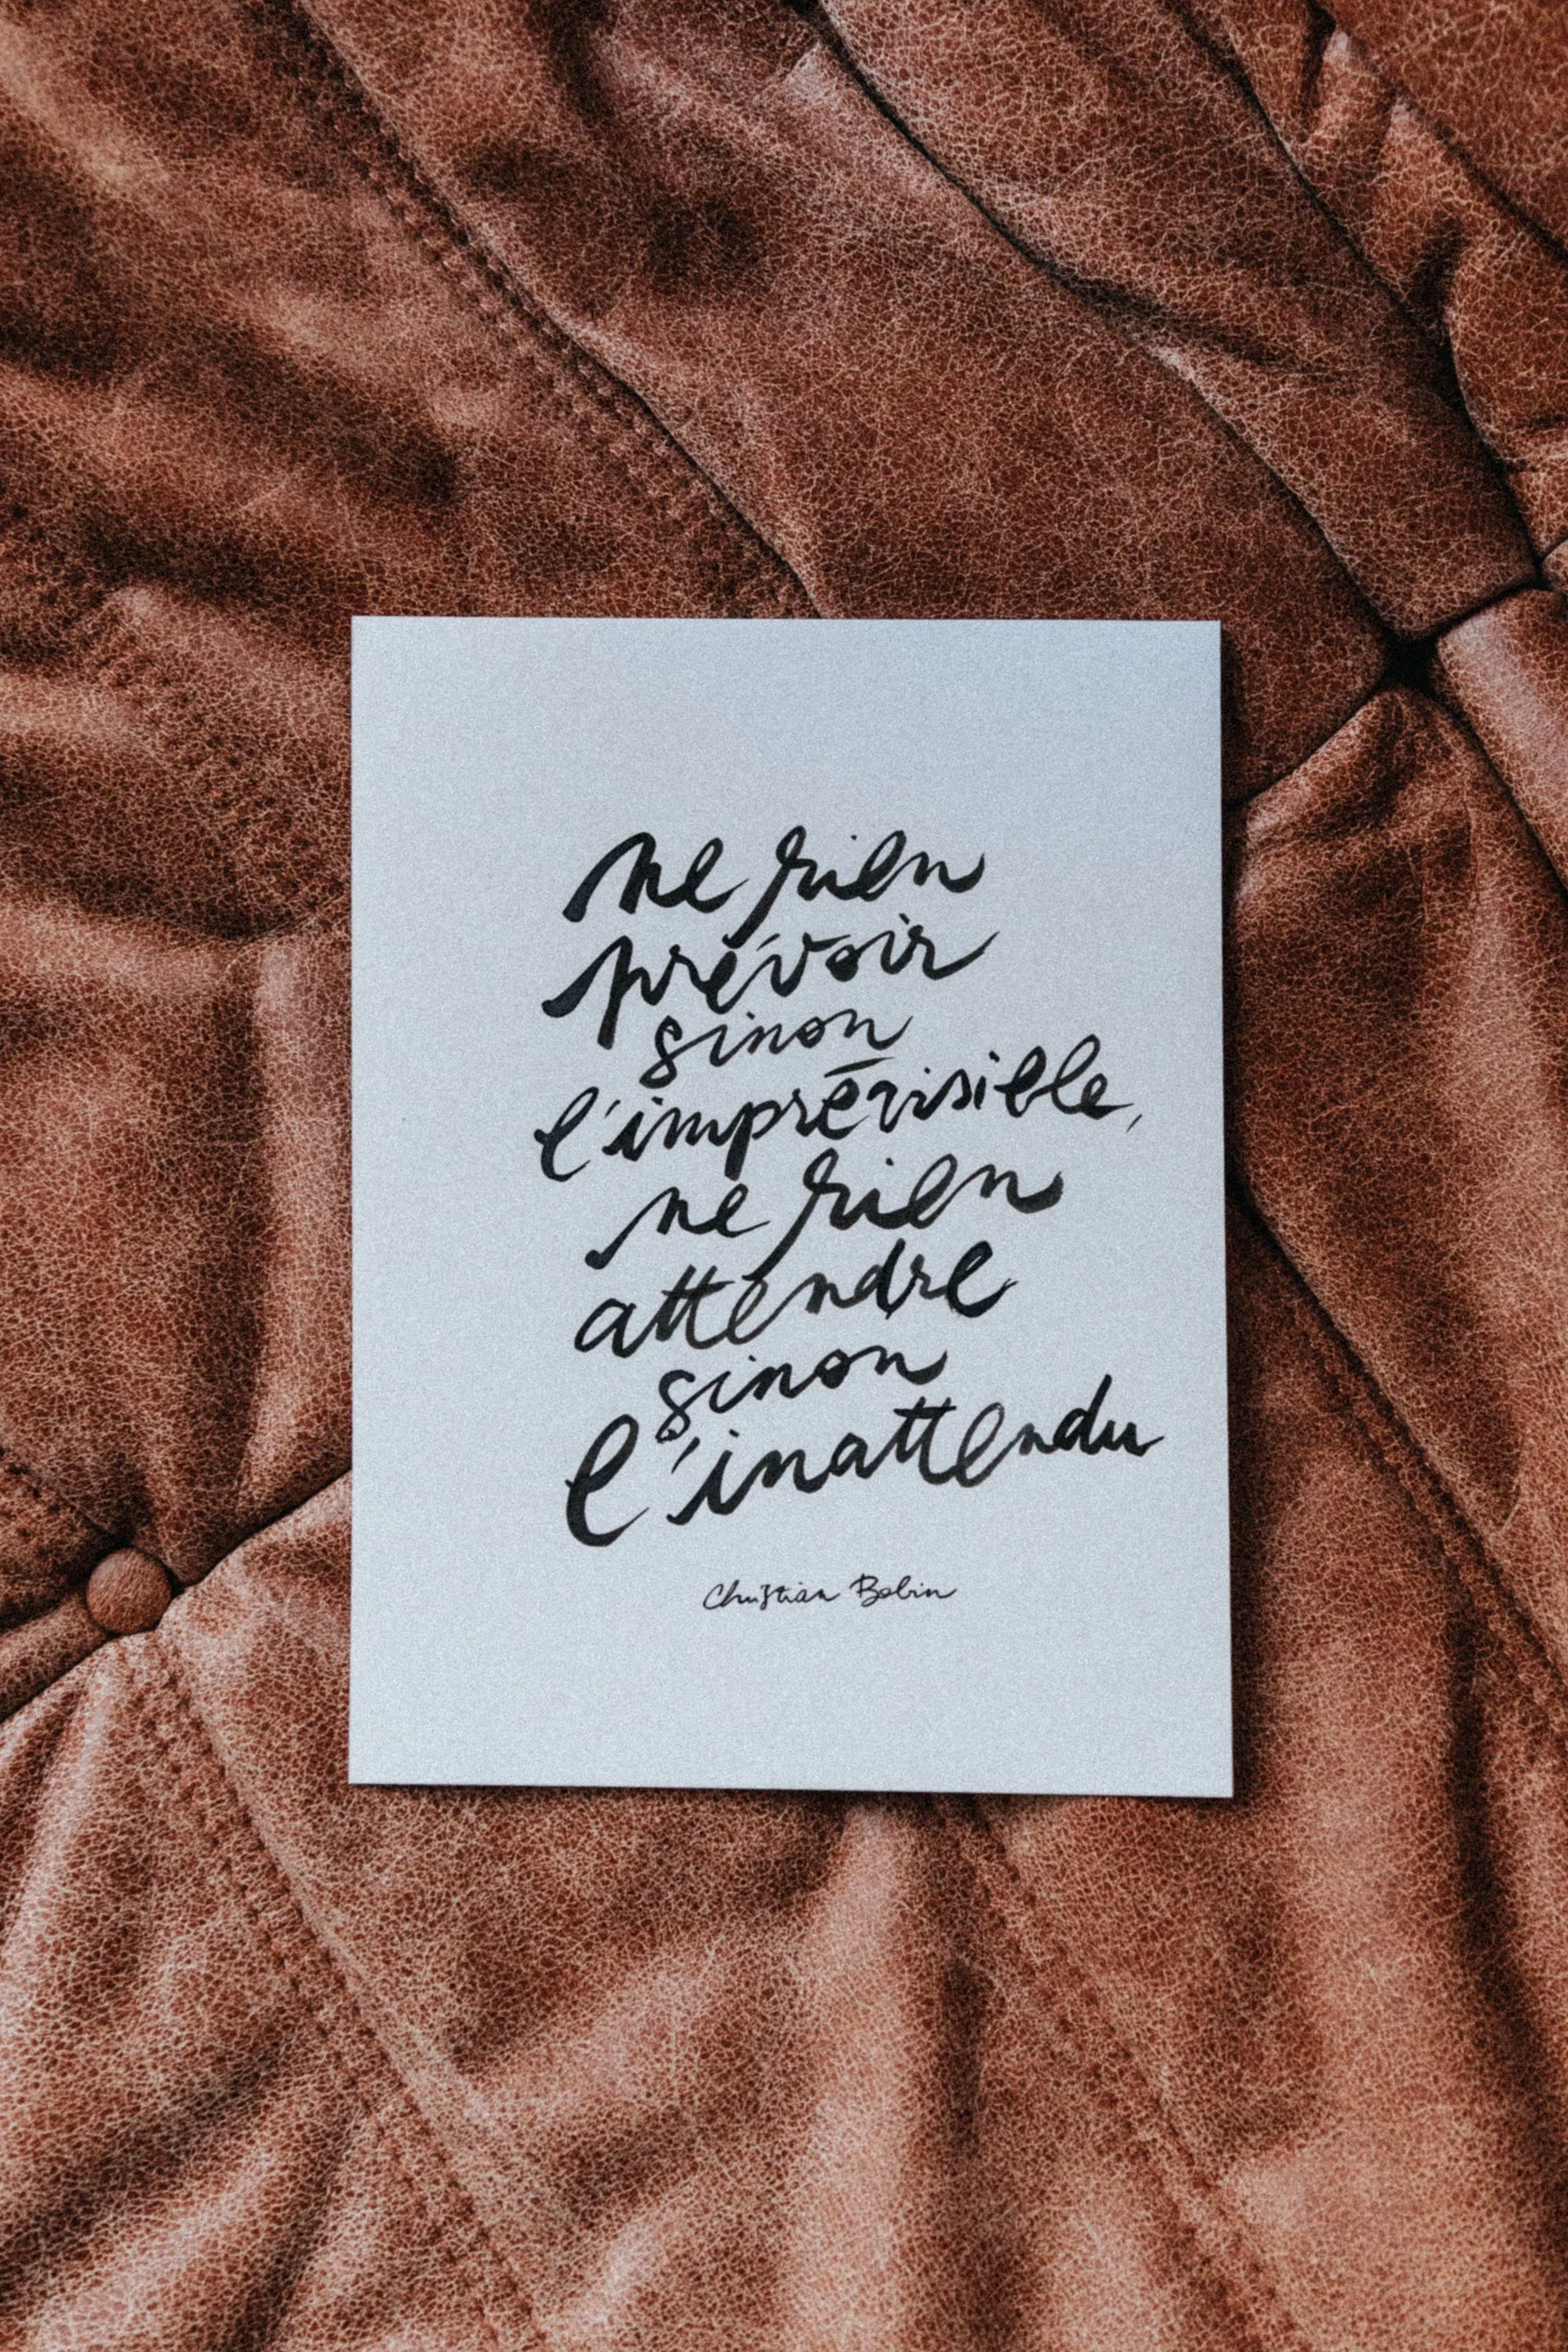 ne rien
prévoir
sinon
l'imprévisible,
ne rien
attendre
sinon
l'inattendu
Christian Bobin